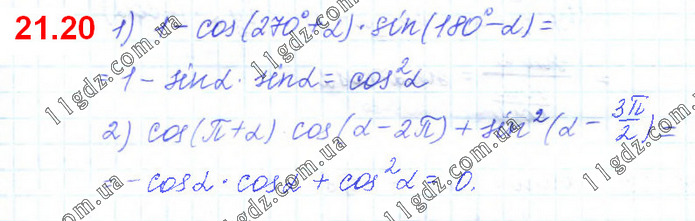 21.20 1) 1 - cos(270°+α)·sin(180°-α)=
= 1 - sinα · sinα = cos²α
2) cos(π+α) cos(α-2π) + sin²(α - 3π/2) =
= - cosα · cosα + cos²α = 0.
11gdz.com
11gdz.com
11gdz.com
11gdz.com
11gdz.com
11gdz.com